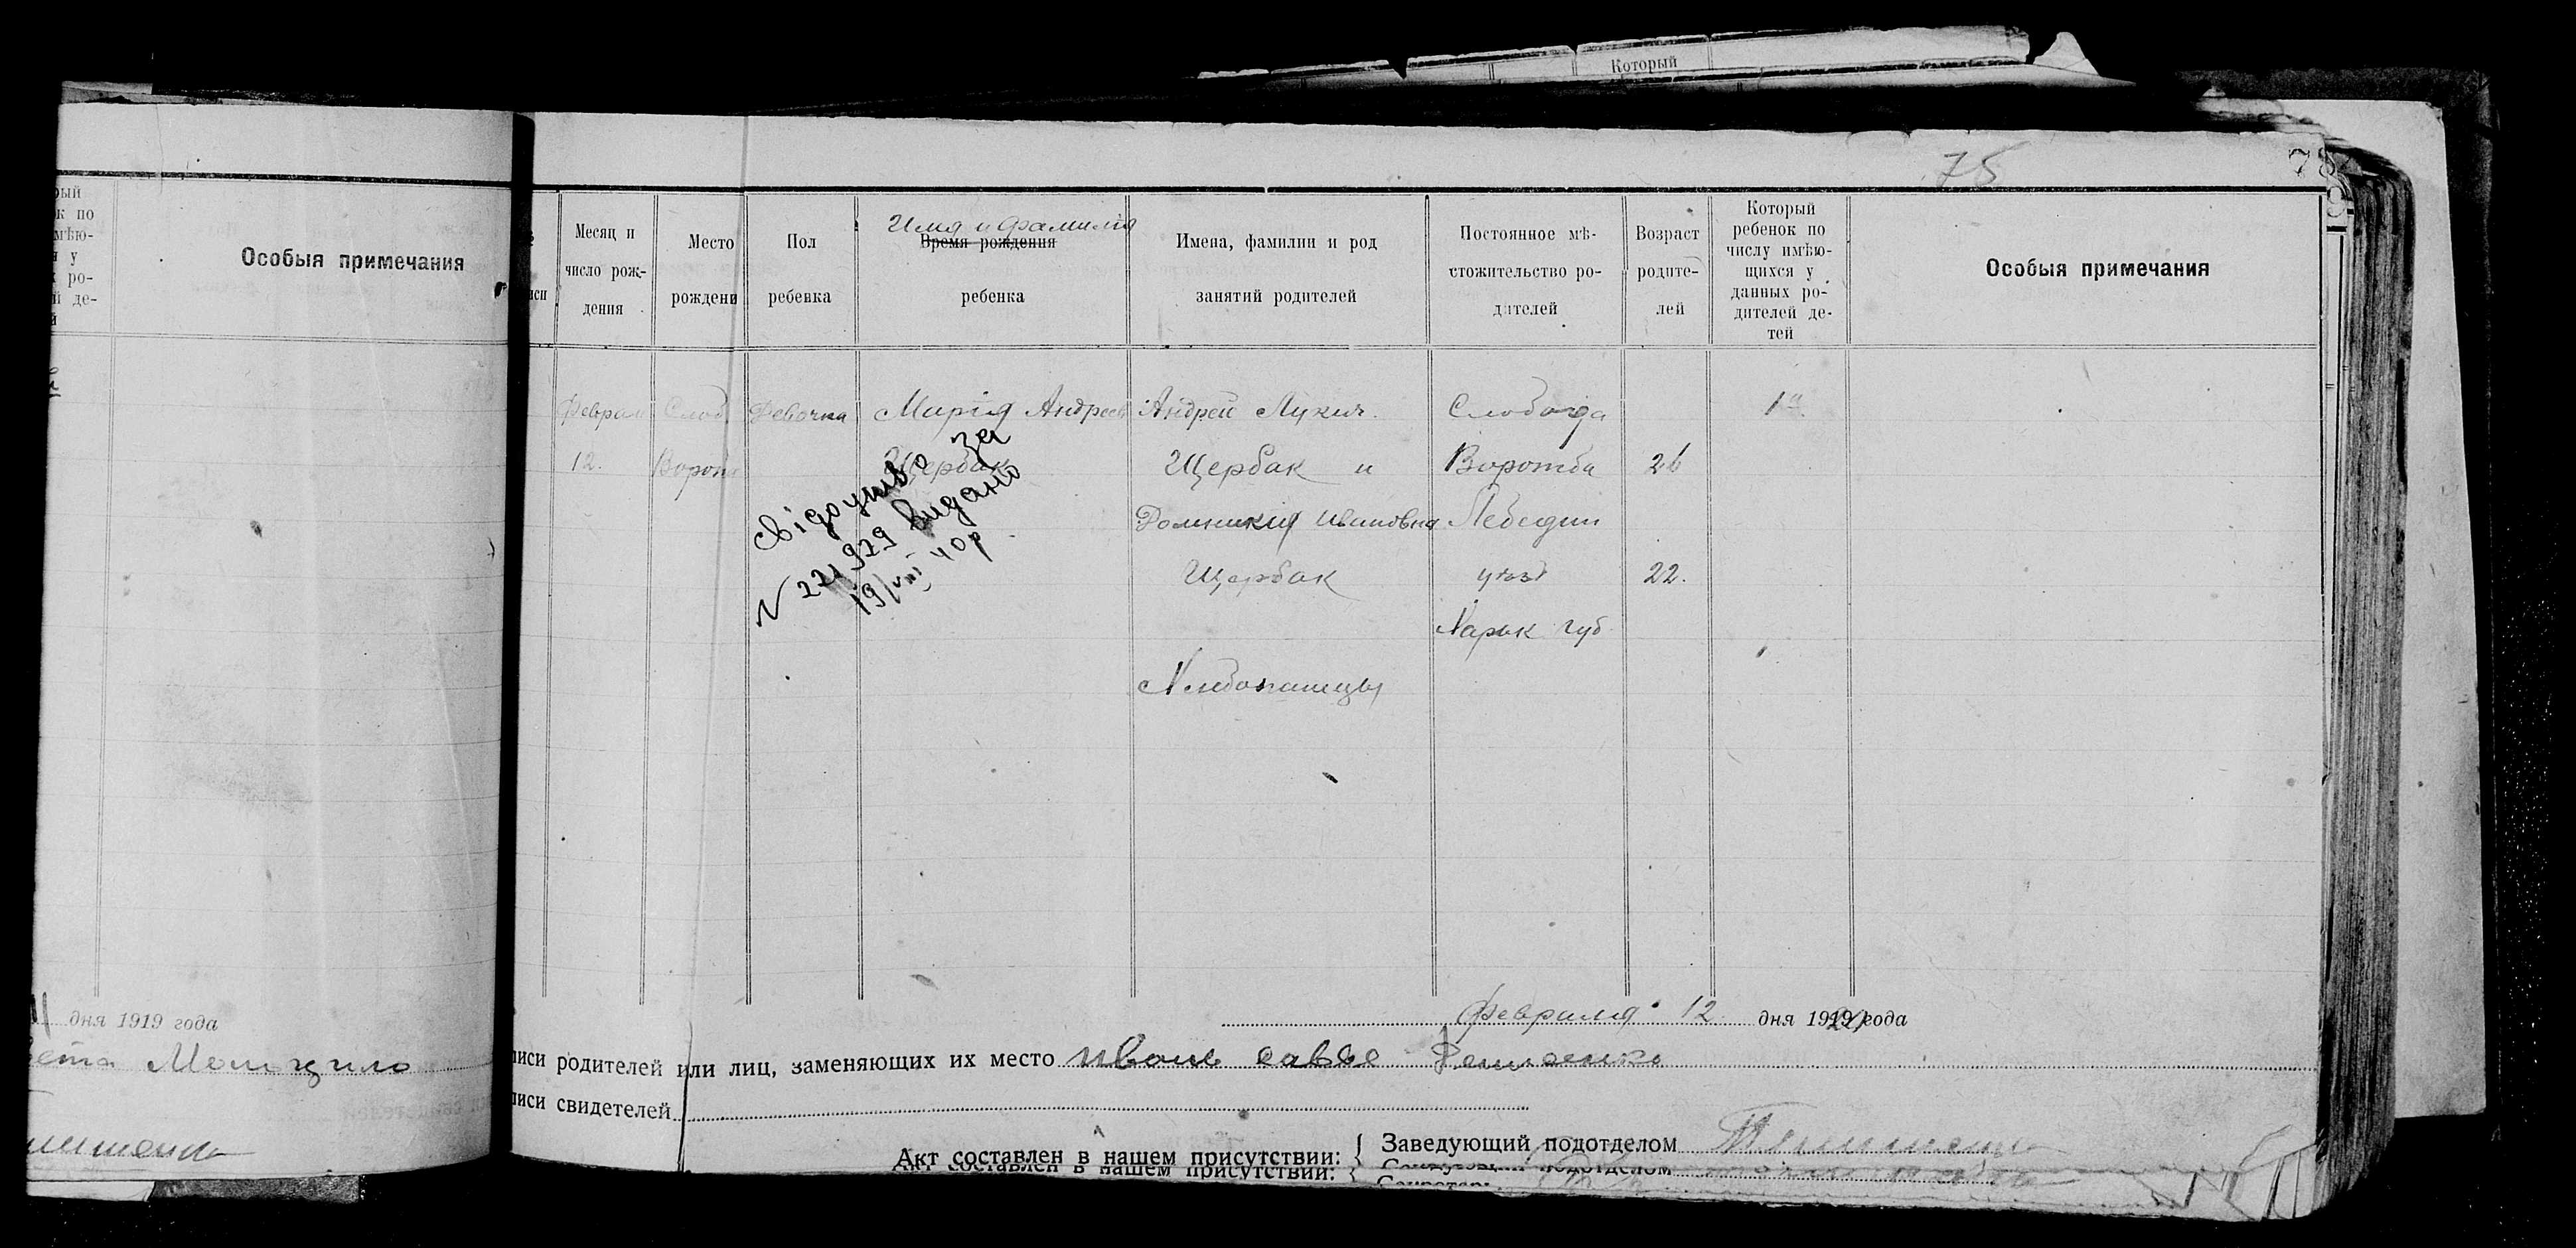 Который
75
78
рый
к по
мѣю-
я у
х ро-
й де-
й
Особыя примечания
иси
Месяц и
число рож-
дения
Место
рождени
Пол
ребенка
Имя и фамилія
Время рождения
ребенка
Имена, фамилии и род
занятий родителей
Постоянное мѣ-
стожительство ро-
дителей
Возраст
родите-
лей
Который
ребенок по
числу имѣю-
щихся у
данных ро-
дителей де-
тей
Особыя примечания
Феврал
12.
Слоб
Ворож
Девочка
Марія Андреев
Щербак
Андрей Лукич.
Щербак и
Домникия Ивановна
Щербак
Хлебопашцы
Слобода
Ворожба
Лебедин
уѣзд
Харьк губ
26
22.
1й
Свідоцтво за
№ 221929 видано
19/VIII 40р
11 дня 1919 года
Февраля 12 дня 1919 20 года
писи родителей или лиц, заменяющих их место Ивань савве
писи свидетелей
Акт составлен в нашем присутствии: { Заведующий подотделом
Акт составлен в нашем присутствии:
подотделом
Секретарь